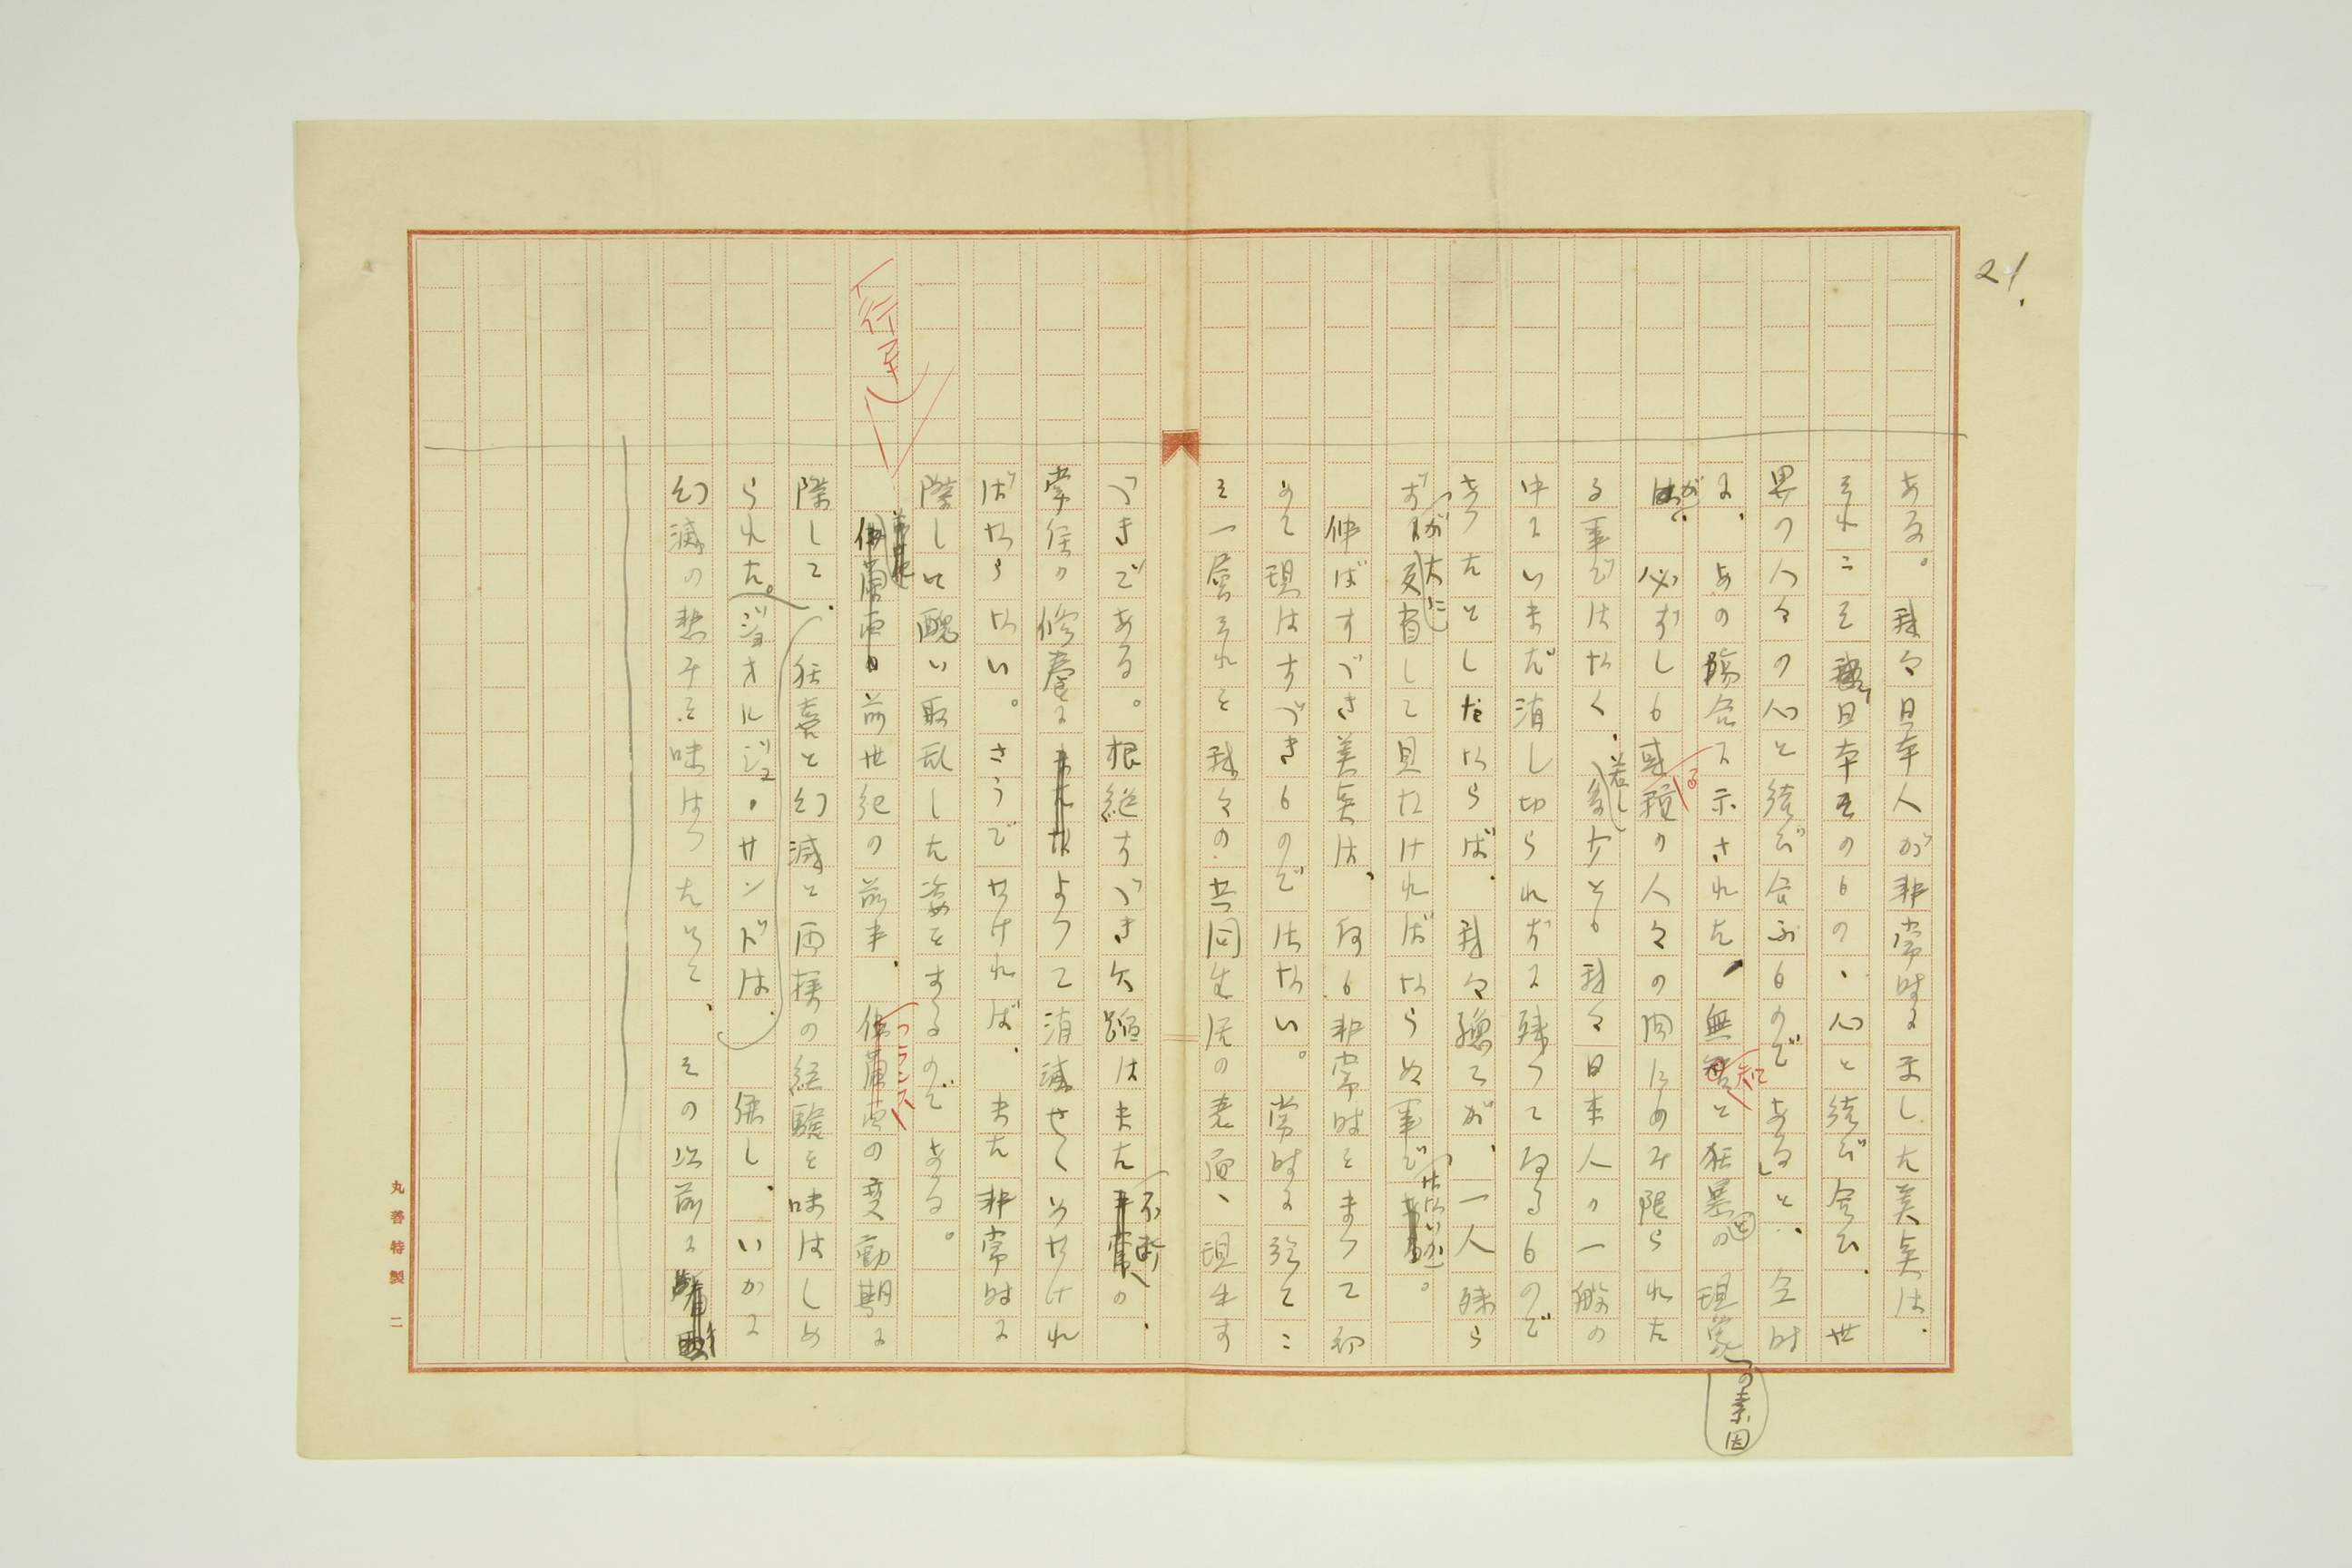 21.
ある。我々日本人が非常時に示した美点は、
それこそ日本そのもの、心と結び合ひ、世
界の人々の心と結び合ふものである」と、全時
に、あの場合に示された、無知と狂暴との現象の素因
が、必ずしも或る種の人々の間にのみ限られた
る事ではなく、若し多少とも我々日本人の一般の
中にいまだ消し切られずに残つてゐるもので
あつたとしたならば、我々総てが、一人残ら
ずが大に反省して見なければならぬ事ではないか。
伸ばすべき美点は、何も非常時をまつて初
めて現はすべきものではない。常時に於てこ
そ一層それを我々の共同生活の表面へ現出す
べきである。根絶すべき欠蹈はまた不断の、
常住の修養によつて消滅せしめなけれ
ばならない。さうでなければ、また非常時に
際して醜い取乱した姿をするのである。
(行アキ)
前世紀の前半、フランスの変動期に
際して、狂喜と幻滅と両様の経験を味はしめ
られた。ジョオルジュ・サンドは、併し、いかに
幻滅の悲みを味はつたとて、その以前に
丸善特製 二